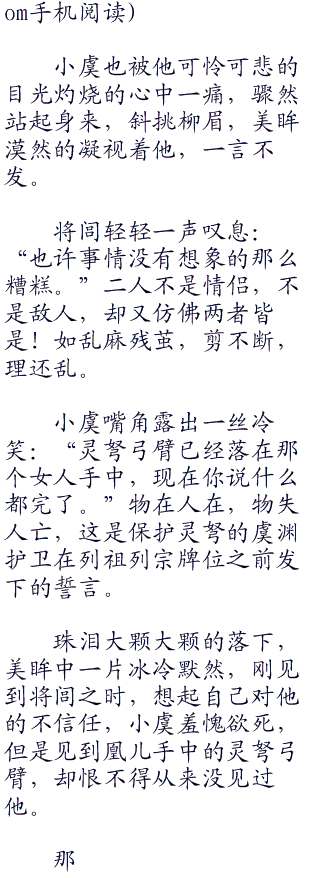 om手机阅读）
小虞也被他可怜可悲的
目光灼烧的心中一痛，骤然
站起身来，斜挑柳眉，美眸
漠然的凝视着他，一言不
发。
将闾轻轻一声叹息：
“也许事情没有想象的那么
糟糕。”二人不是情侣，不
是敌人，却又仿佛两者皆
是！如乱麻残茧，剪不断，
理还乱。
小虞嘴角露出一丝冷
笑：“灵弩弓臂已经落在那
个女人手中，现在你说什么
都完了。”物在人在，物失
人亡，这是保护灵弩的虞渊
护卫在列祖列宗牌位之前发
下的誓言。
珠泪大颗大颗的落下，
美眸中一片冰冷默然，刚见
到将闾之时，想起自己对他
的不信任，小虞羞愧欲死，
但是见到凰儿手中的灵弩弓
臂，却恨不得从来没见过
他。
那